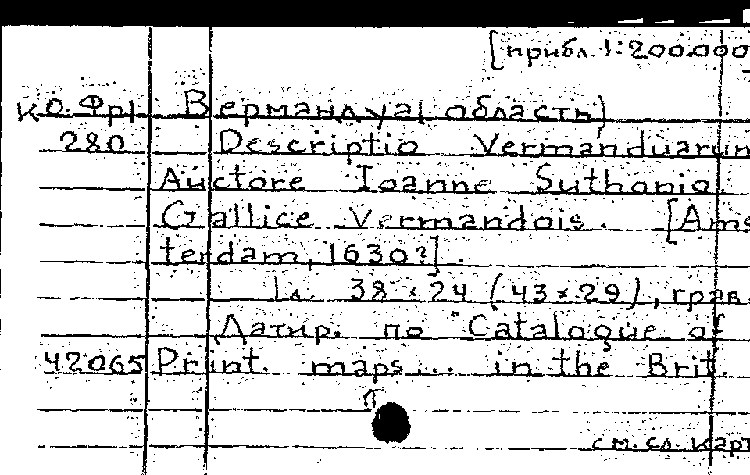 [прибл. 1:200.000
К О. Фр1 Вермандуа (область)
280 Descriptio Vermanduarum
Auctore Ioanne Suthonio.
Gallice Vermandois. [Ams
terdam, 1630?].
1л. 38 × 24 (43×29), грав
Датир. по "Catalogue of
42065 Print. maps... in the Brit.
см. сл. карт